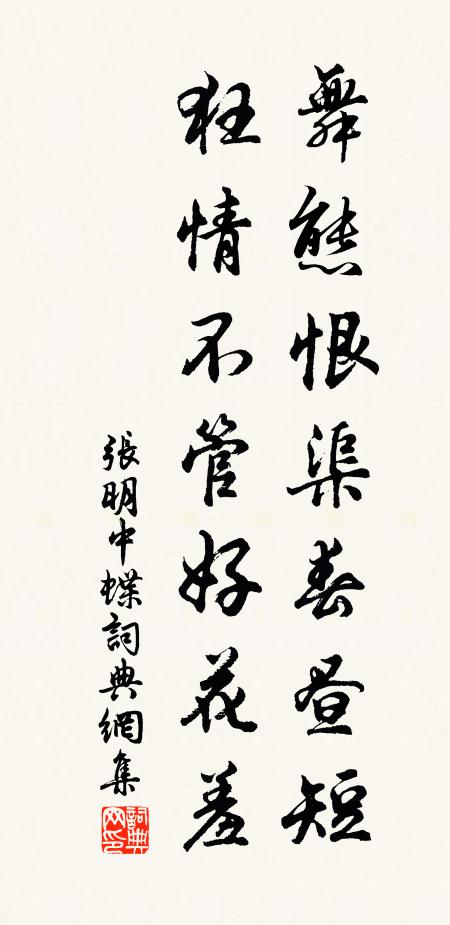 舞態恨渠春昼短
狂情不管好花羞
張明中蝶詞典網集
詞典
网印